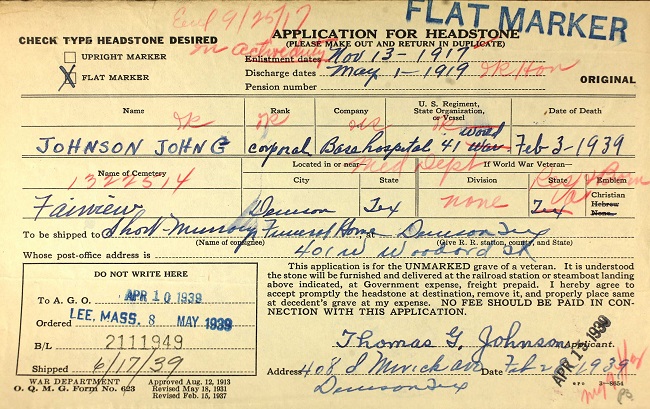 Enl 9/25/17
FLAT MARKER
CHECK TYPE HEADSTONE DESIRED
in active duty
APPLICATION FOR HEADSTONE
(PLEASE MAKE OUT AND RETURN IN DUPLICATE)
UPRIGHT MARKER
Enlistment dates Nov 13-1917
X FLAT MARKER
Discharge dates May 1-1919 OK Hon
Pension number
ORIGINAL
Name
Rank
Company
U. S. Regiment, State Organization, or Vessel
Date of Death
OK OK OK
JOHNSON JOHN C corporal Base hospital 41 World War Feb 3-1939
Name of Cemetery
Located in or near—
City
State
Med Dept
If World War Veteran—
Division
State
Emblem
1322514
none
Christian
Hebrew
None
Fairview Denison Tex Tex
To be shipped to Short-Murray Funeral Home, at Denison Tex
(Name of consignee)
(Give R. R. station, county, and State)
Whose post-office address is 401 W Woodard St
DO NOT WRITE HERE
To A. G. O. APR 10 1939
Ordered LEE, MASS. 8 MAY 1939
B/L 2111949
Shipped 6/17/39
This application is for the UNMARKED grave of a veteran. It is understood
the stone will be furnished and delivered at the railroad station or steamboat landing
above indicated, at Government expense, freight prepaid. I hereby agree to
accept promptly the headstone at destination, remove it, and properly place same
at decedent's grave at my expense. NO FEE SHOULD BE PAID IN CON-
NECTION WITH THIS APPLICATION.
Thomas G. Johnson Applicant.
APR 13 1939
Address 408 S Mirick ave Date Feb 1939
Denison Tex
WAR DEPARTMENT
O. Q. M. G. Form No. 623
Approved Aug. 12, 1913
Revised May 18, 1931
Revised Feb. 15, 1937
GPO 3—8654